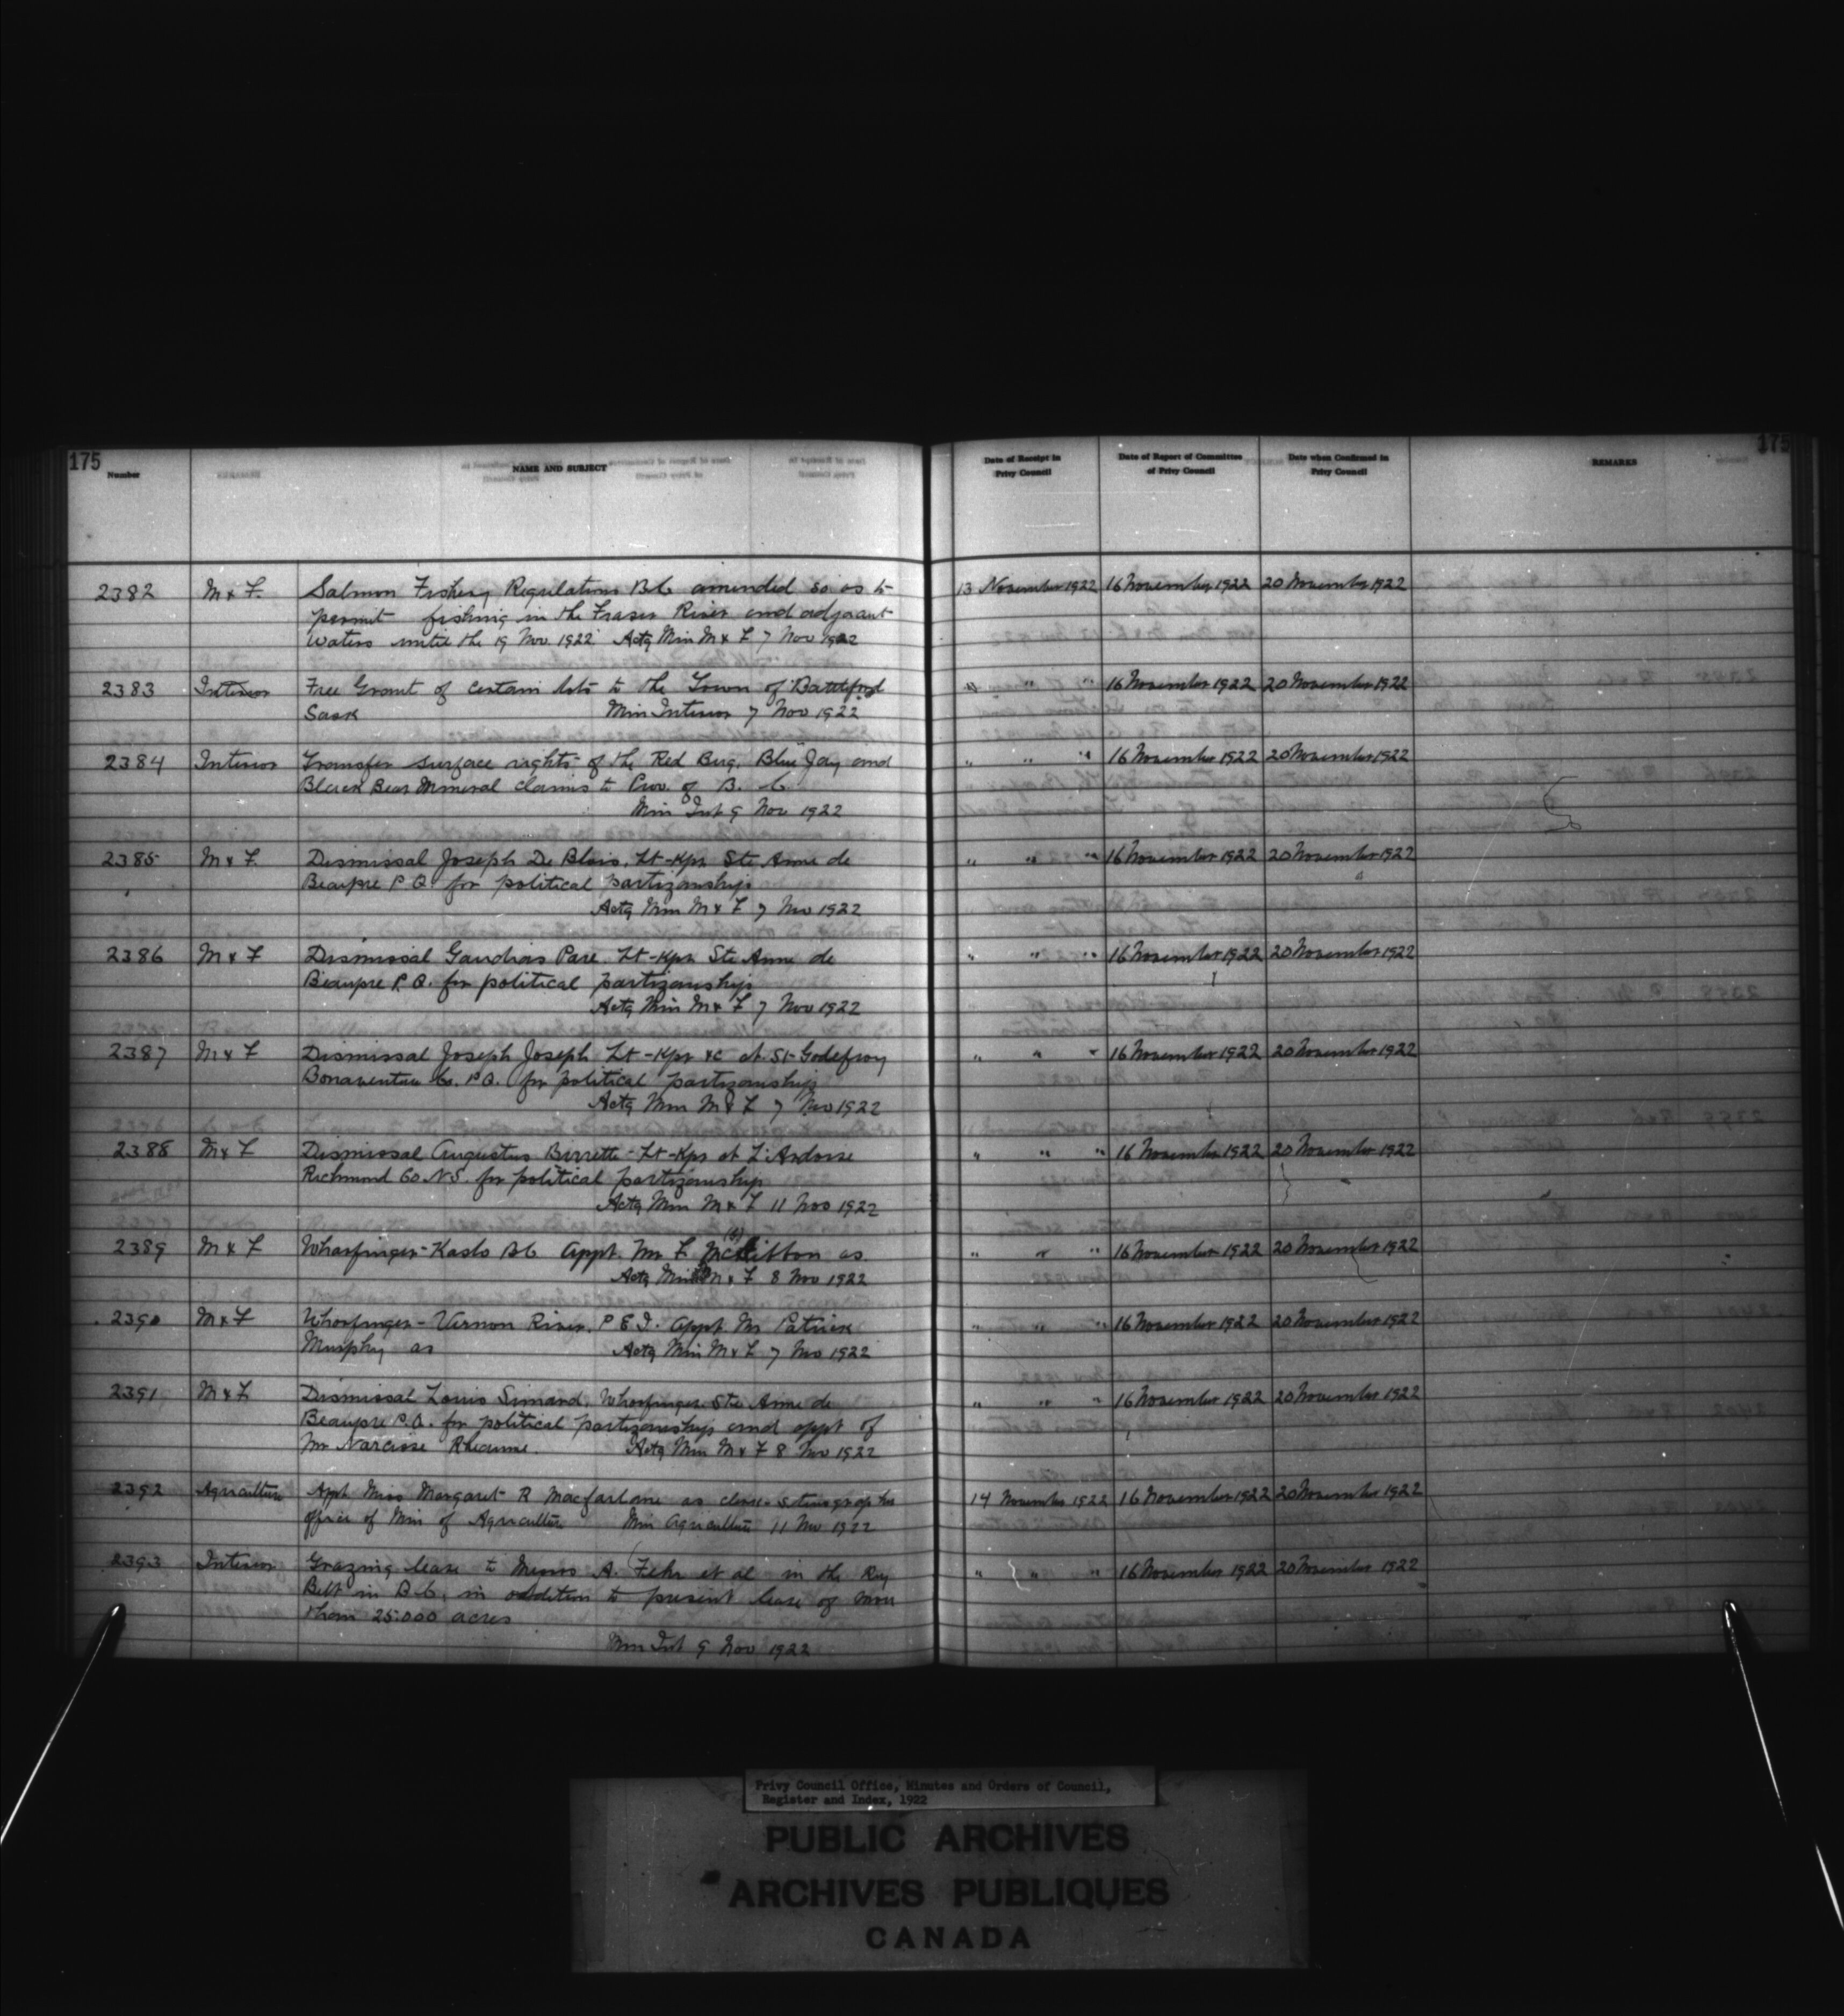 175
175
Number
NAME AND SUBJECT
Date of Receipt in
Privy Council
Date of Report of Committee
of Privy Council
Date when Confirmed in
Privy Council
REMARKS
2382 M & F. Salmon Fishery Regulations B C amended so as to 13 November 1922 16 November 1922 20 November 1922
permit fishing in the Fraser River and adjacent
waters until the 19 Nov. 1922. Actg Min M & F 7 Nov 1922
2383 Interior Free Grant of certain lots to the Town of Battleford " " " 16 November 1922 20 November 1922
Sask Min Interior 7 Nov 1922
2384 Interior Transfer surface rights of the Red Bug, Blue Jay and " " " 16 November 1922 20 November 1922
Black Bear Mineral claims to Prov. of B. C.
Min Int 9 Nov 1922
2385 M & F. Dismissal Joseph De Blois, Lt-Kpr Ste Anne de " " " 16 November 1922 20 November 1922
Beaupre P.Q. for political partizanship
Actg Min M & F 7 Nov 1922
2386 M & F Dismissal Pare Lt-Kpr Ste Anne de " " " 16 November 1922 20 November 1922
Beaupre P.Q. for political partizanship
Actg Min M & F 7 Nov 1922
2387 M & F Dismissal Joseph Joseph Lt-Kpr &c at St-Godefroy " " " 16 November 1922 20 November 1922
Bonaventure Co. P.Q. for political partizanship
Actg Min M & F 7 Nov 1922
2388 M & F Dismissal Augustus Lt-Kpr at L'Ardoise " " " 16 November 1922 20 November 1922
Richmond Co. N.S. for political partizanship
Actg Min M & F 11 Nov 1922
2389 M & F Wharfinger-Kaslo B C Appt. Mr F. McGibbon as " " " 16 November 1922 20 November 1922
Actg Min M & F 8 Nov 1922
2390 M & F Wharfinger - Vernon River, P E I. Appt. Mr Patrick " " " 16 November 1922 20 November 1922
Murphy as Actg Min M & F 7 Nov 1922
2391 M & F Dismissal Louis Simard, Wharfinger Ste Anne de " " " 16 November 1922 20 November 1922
Beaupre P.Q. for political partizanship and appt of
Mr Narcisse Rheaume. Actg Min M & F 8 Nov 1922
2392 Agriculture Appt Miss Margaret R Macfarlane as clerk-stenographer 14 November 1922 16 November 1922 20 November 1922
office of Min of Agriculture Min Agriculture 11 Nov 1922
2393 Interior Grazing lease to Messrs A. Fehr et al in the Ry " " " 16 November 1922 20 November 1922
Belt in B C, in addition to present lease of more
than 25.000 acres
Min Int 9 Nov 1922
Privy Council Office, Minutes and Orders of Council,
Register and Index, 1922
PUBLIC ARCHIVES
ARCHIVES PUBLIQUES
CANADA